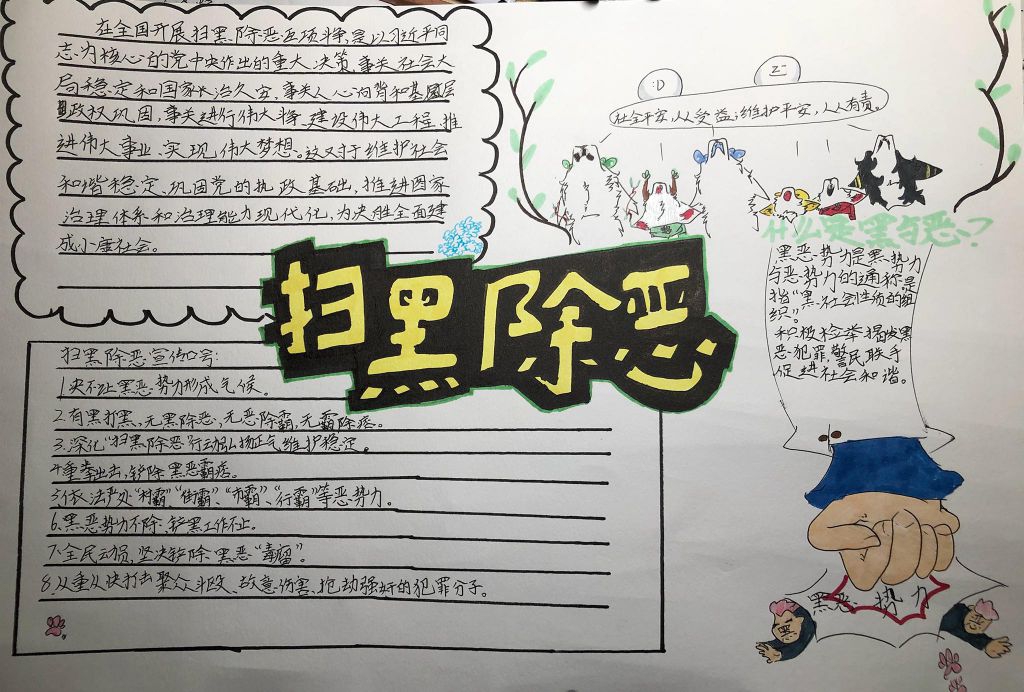 在全国开展扫黑除恶专项斗争,是以习近平同
志为核心的党中央作出的重大决策,事关社会大
局稳定和国家长治久安,事关人心向背和基层
政权巩固,事关进行伟大斗争、建设伟大工程、推
进伟大事业、实现伟大梦想。这对于维护社会
和谐稳定、巩固党的执政基础,推进国家
治理体系和治理能力现代化,为决胜全面建
成小康社会。
社会平安,人人受益;维护平安,人人有责。
扫黑除恶
什么是黑与恶?
黑恶势力是黑势力
与恶势力的通称,是
指“黑社会性质的组
织”。
积极检举揭发黑
恶犯罪,警民联手
促进社会和谐。
扫黑除恶宣传口号:
1.决不让黑恶势力形成气候。
2.有黑打黑,无黑除恶,无恶除霸,无霸除痞。
3.深化“扫黑除恶”行动弘扬正气维护稳定。
4.重拳出击,铲除黑恶霸痞。
5.依法严处“村霸”“街霸”、“市霸”、“行霸”等恶势力。
6.黑恶势力不除、铲黑工作不止。
7.全民动员,坚决铲除黑恶“毒瘤”。
8.从重从快打击聚众斗殴、故意伤害、抢劫强奸的犯罪分子。
黑恶势力